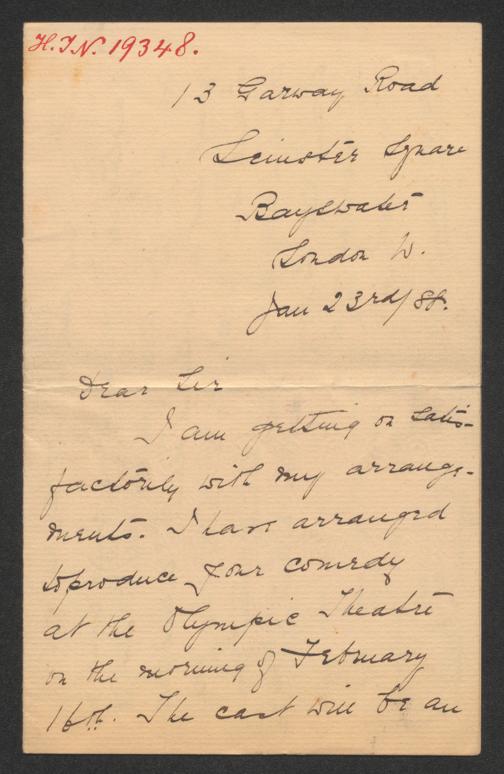 H.I.N. 19348.
13 Garway Road
Leinster Square
Bayswater
London W.
Jan 23rd/88.
Dear Sir
I am getting on satis-
factorily with my arrange-
ments. I have arranged
to produce your comedy
at the Olympic Theatre
on the morning of February
16th. The cast will be an